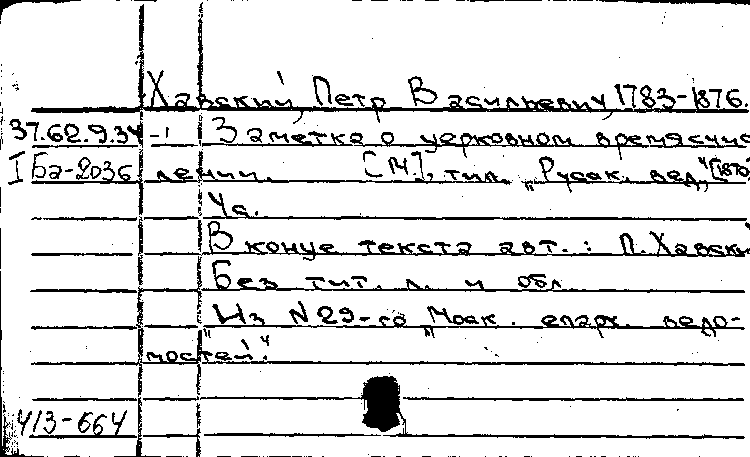 Хавский, Петр Васильевич, 1783-1876.
37.62.9.34 -1 Заметка о церковном времясчис
I Ба-2036 лении. [М.], тип. "Русск. вед.", [1870]
4с.
В конце текста авт.: П. Хавский
Без тит. л. и обл.
Из N 29-го "Моск. епарх. ведо-
мостей".
413-664